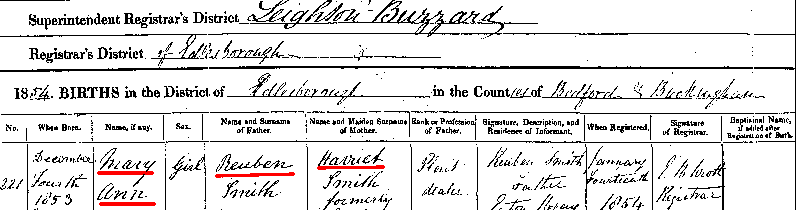 Superintendent Registrar's District Leighton Buzzard
Registrar's District of Edlesborough
1854. BIRTHS in the District of Edlesborough in the Counties of Bedford & Buckingham
No. When Born. Name, if any. Sex. Name and Surname of Father. Name and Maiden Surname of Mother. Rank or Profession of Father. Signature, Description, and Residence of Informant. When Registered. Signature of Registrar. Baptismal Name, if added after Registration of Birth.
221 December Fourth 1853
Mary Ann
Girl
Reuben Smith
Harriet Smith formerly
dealer
Reuben Smith Father Eaton
January Fourteenth 1854
Registrar